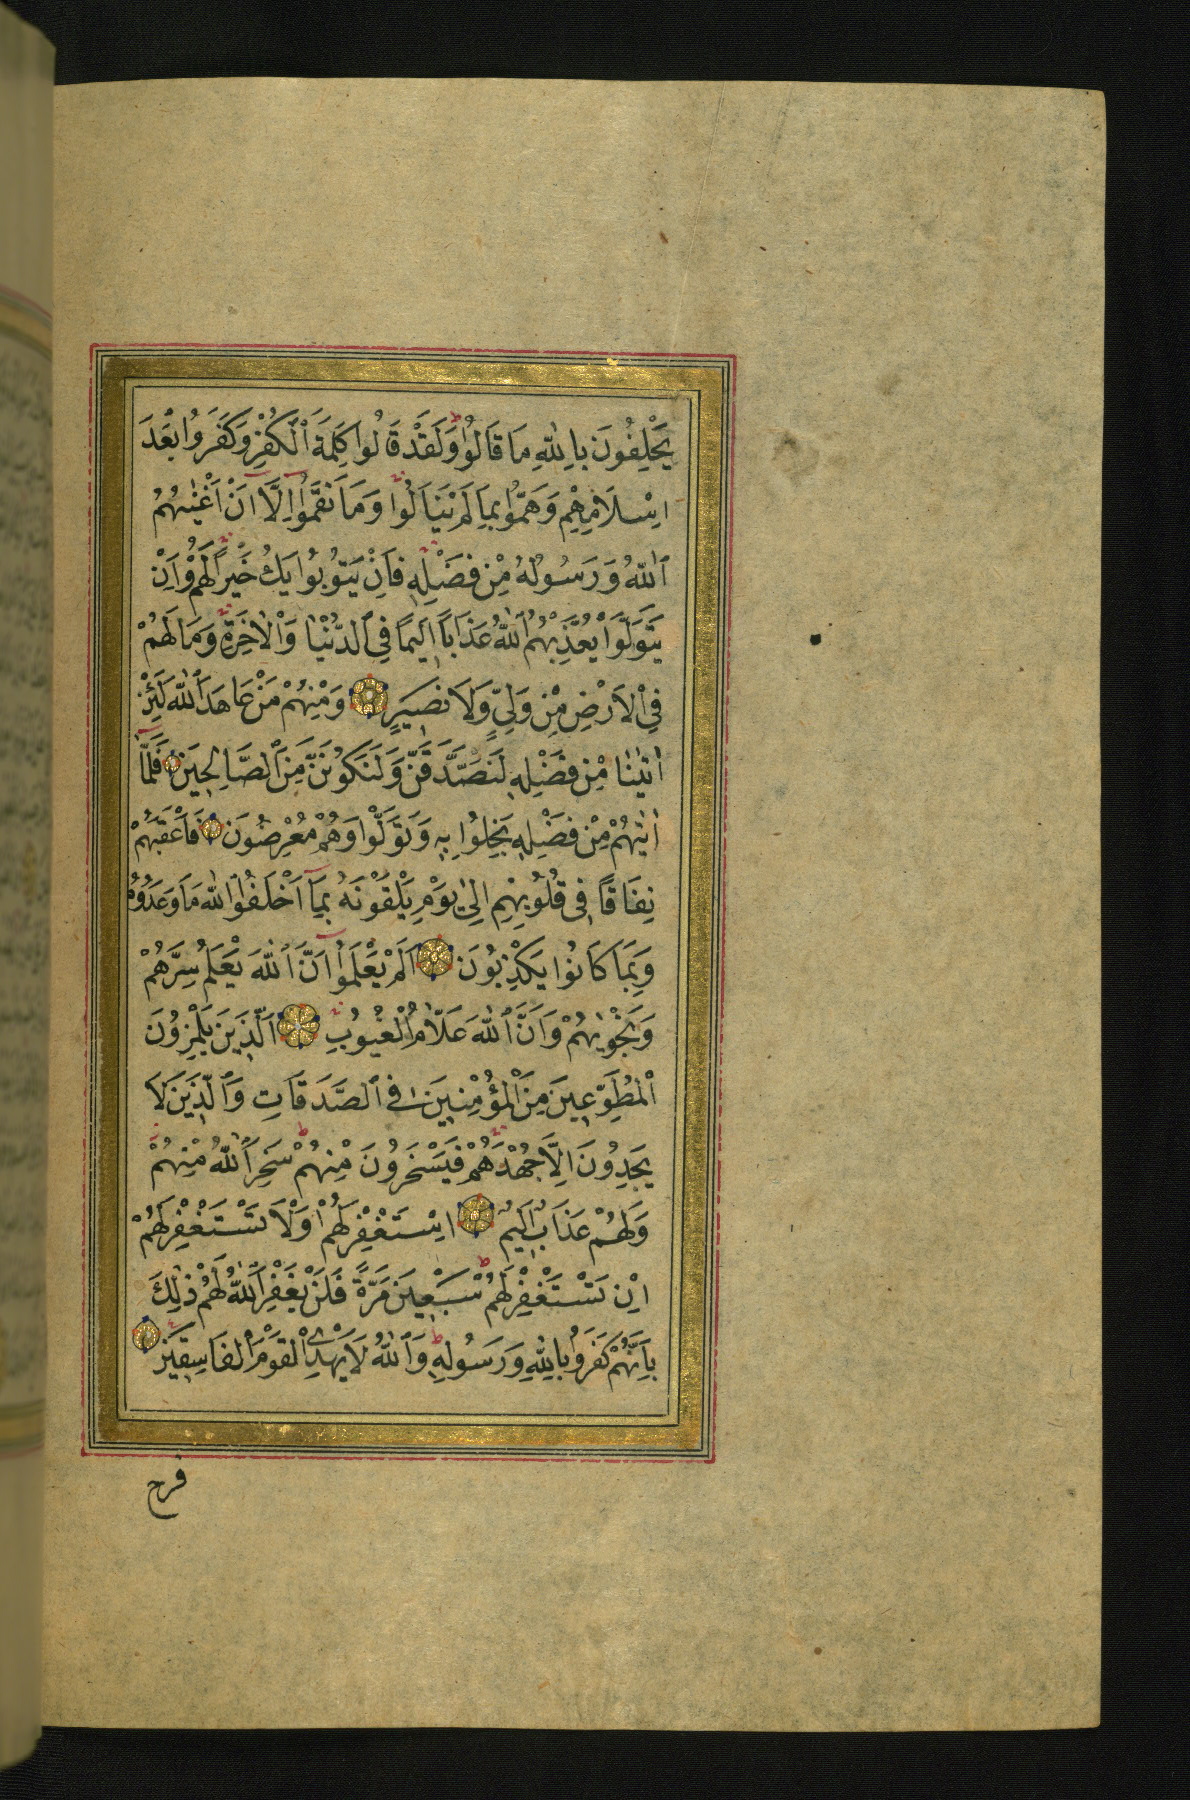 يَحْلِفُونَ بِاللّٰهِ مَا قَالُوا وَلَقَدْ قَالُوا كَلِمَةَ الْكُفْرِ وَكَفَرُوا بَعْدَ
اِسْلَامِهِمْ وَهَمُّوا بِمَا لَمْ يَنَالُوا وَمَا نَقَمُوا اِلَّا اَنْ اَغْنٰيهُمُ
اللّٰهُ وَرَسُولُهُ مِنْ فَضْلِهِ فَاِنْ يَتُوبُوا يَكُ خَيْرًا لَهُمْ وَاِنْ
يَتَوَلَّوْا يُعَذِّبْهُمُ اللّٰهُ عَذَابًا اَلِيمًا فِي الدُّنْيَا وَالْاٰخِرَةِ وَمَا لَهُمْ
فِي الْاَرْضِ مِنْ وَلِيٍّ وَلَا نَصِيرٍ وَمِنْهُمْ مَنْ عَاهَدَ اللّٰهَ لَئِنْ
اٰتٰينَا مِنْ فَضْلِهِ لَنَصَّدَّقَنَّ وَلَنَكُونَنَّ مِنَ الصَّالِحِينَ فَلَمَّا
اٰتٰيهُمْ مِنْ فَضْلِهِ بَخِلُوا بِهِ وَتَوَلَّوْا وَهُمْ مُعْرِضُونَ فَاَعْقَبَهُمْ
نِفَاقًا فِي قُلُوبِهِمْ اِلٰى يَوْمِ يَلْقَوْنَهُ بِمَا اَخْلَفُوا اللّٰهَ مَا وَعَدُوهُ
وَبِمَا كَانُوا يَكْذِبُونَ اَلَمْ يَعْلَمُوا اَنَّ اللّٰهَ يَعْلَمُ سِرَّهُمْ
وَنَجْوٰيهُمْ وَاَنَّ اللّٰهَ عَلَّامُ الْغُيُوبِ اَلَّذِينَ يَلْمِزُونَ
الْمُطَّوِّعِينَ مِنَ الْمُؤْمِنِينَ فِي الصَّدَقَاتِ وَالَّذِينَ لَا
يَجِدُونَ اِلَّا جُهْدَهُمْ فَيَسْخَرُونَ مِنْهُمْ سَخِرَ اللّٰهُ مِنْهُمْ
وَلَهُمْ عَذَابٌ اَلِيمٌ اِسْتَغْفِرْ لَهُمْ اَوْ لَا تَسْتَغْفِرْ لَهُمْ
اِنْ تَسْتَغْفِرْ لَهُمْ سَبْعِينَ مَرَّةً فَلَنْ يَغْفِرَ اللّٰهُ لَهُمْ ذٰلِكَ
بِاَنَّهُمْ كَفَرُوا بِاللّٰهِ وَرَسُولِهِ وَاللّٰهُ لَا يَهْدِي الْقَوْمَ الْفَاسِقِينَ
فرح